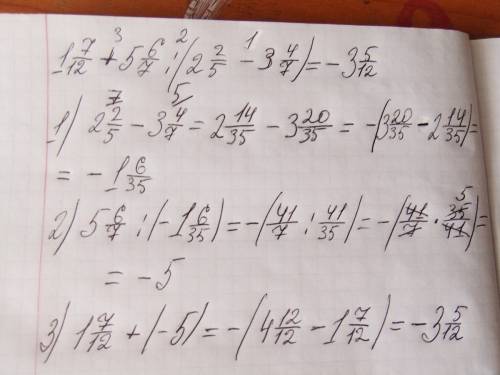 1 7/12 +³ 5 6/7 :² (2 2/5 -¹ 3 4/7) = - 3 5/12
1) 2 2/5 ⁷ - 3 4/7 ⁵ = 2 14/35 - 3 20/35 = - (3 20/35 - 2 14/35) =
= - 1 6/35
2) 5 6/7 : (- 1 6/35) = - (41/7 : 41/35) = - (41/7 · 35/41 ⁵) =
= - 5
3) 1 7/12 + (- 5) = - (4 12/12 - 1 7/12) = - 3 5/12